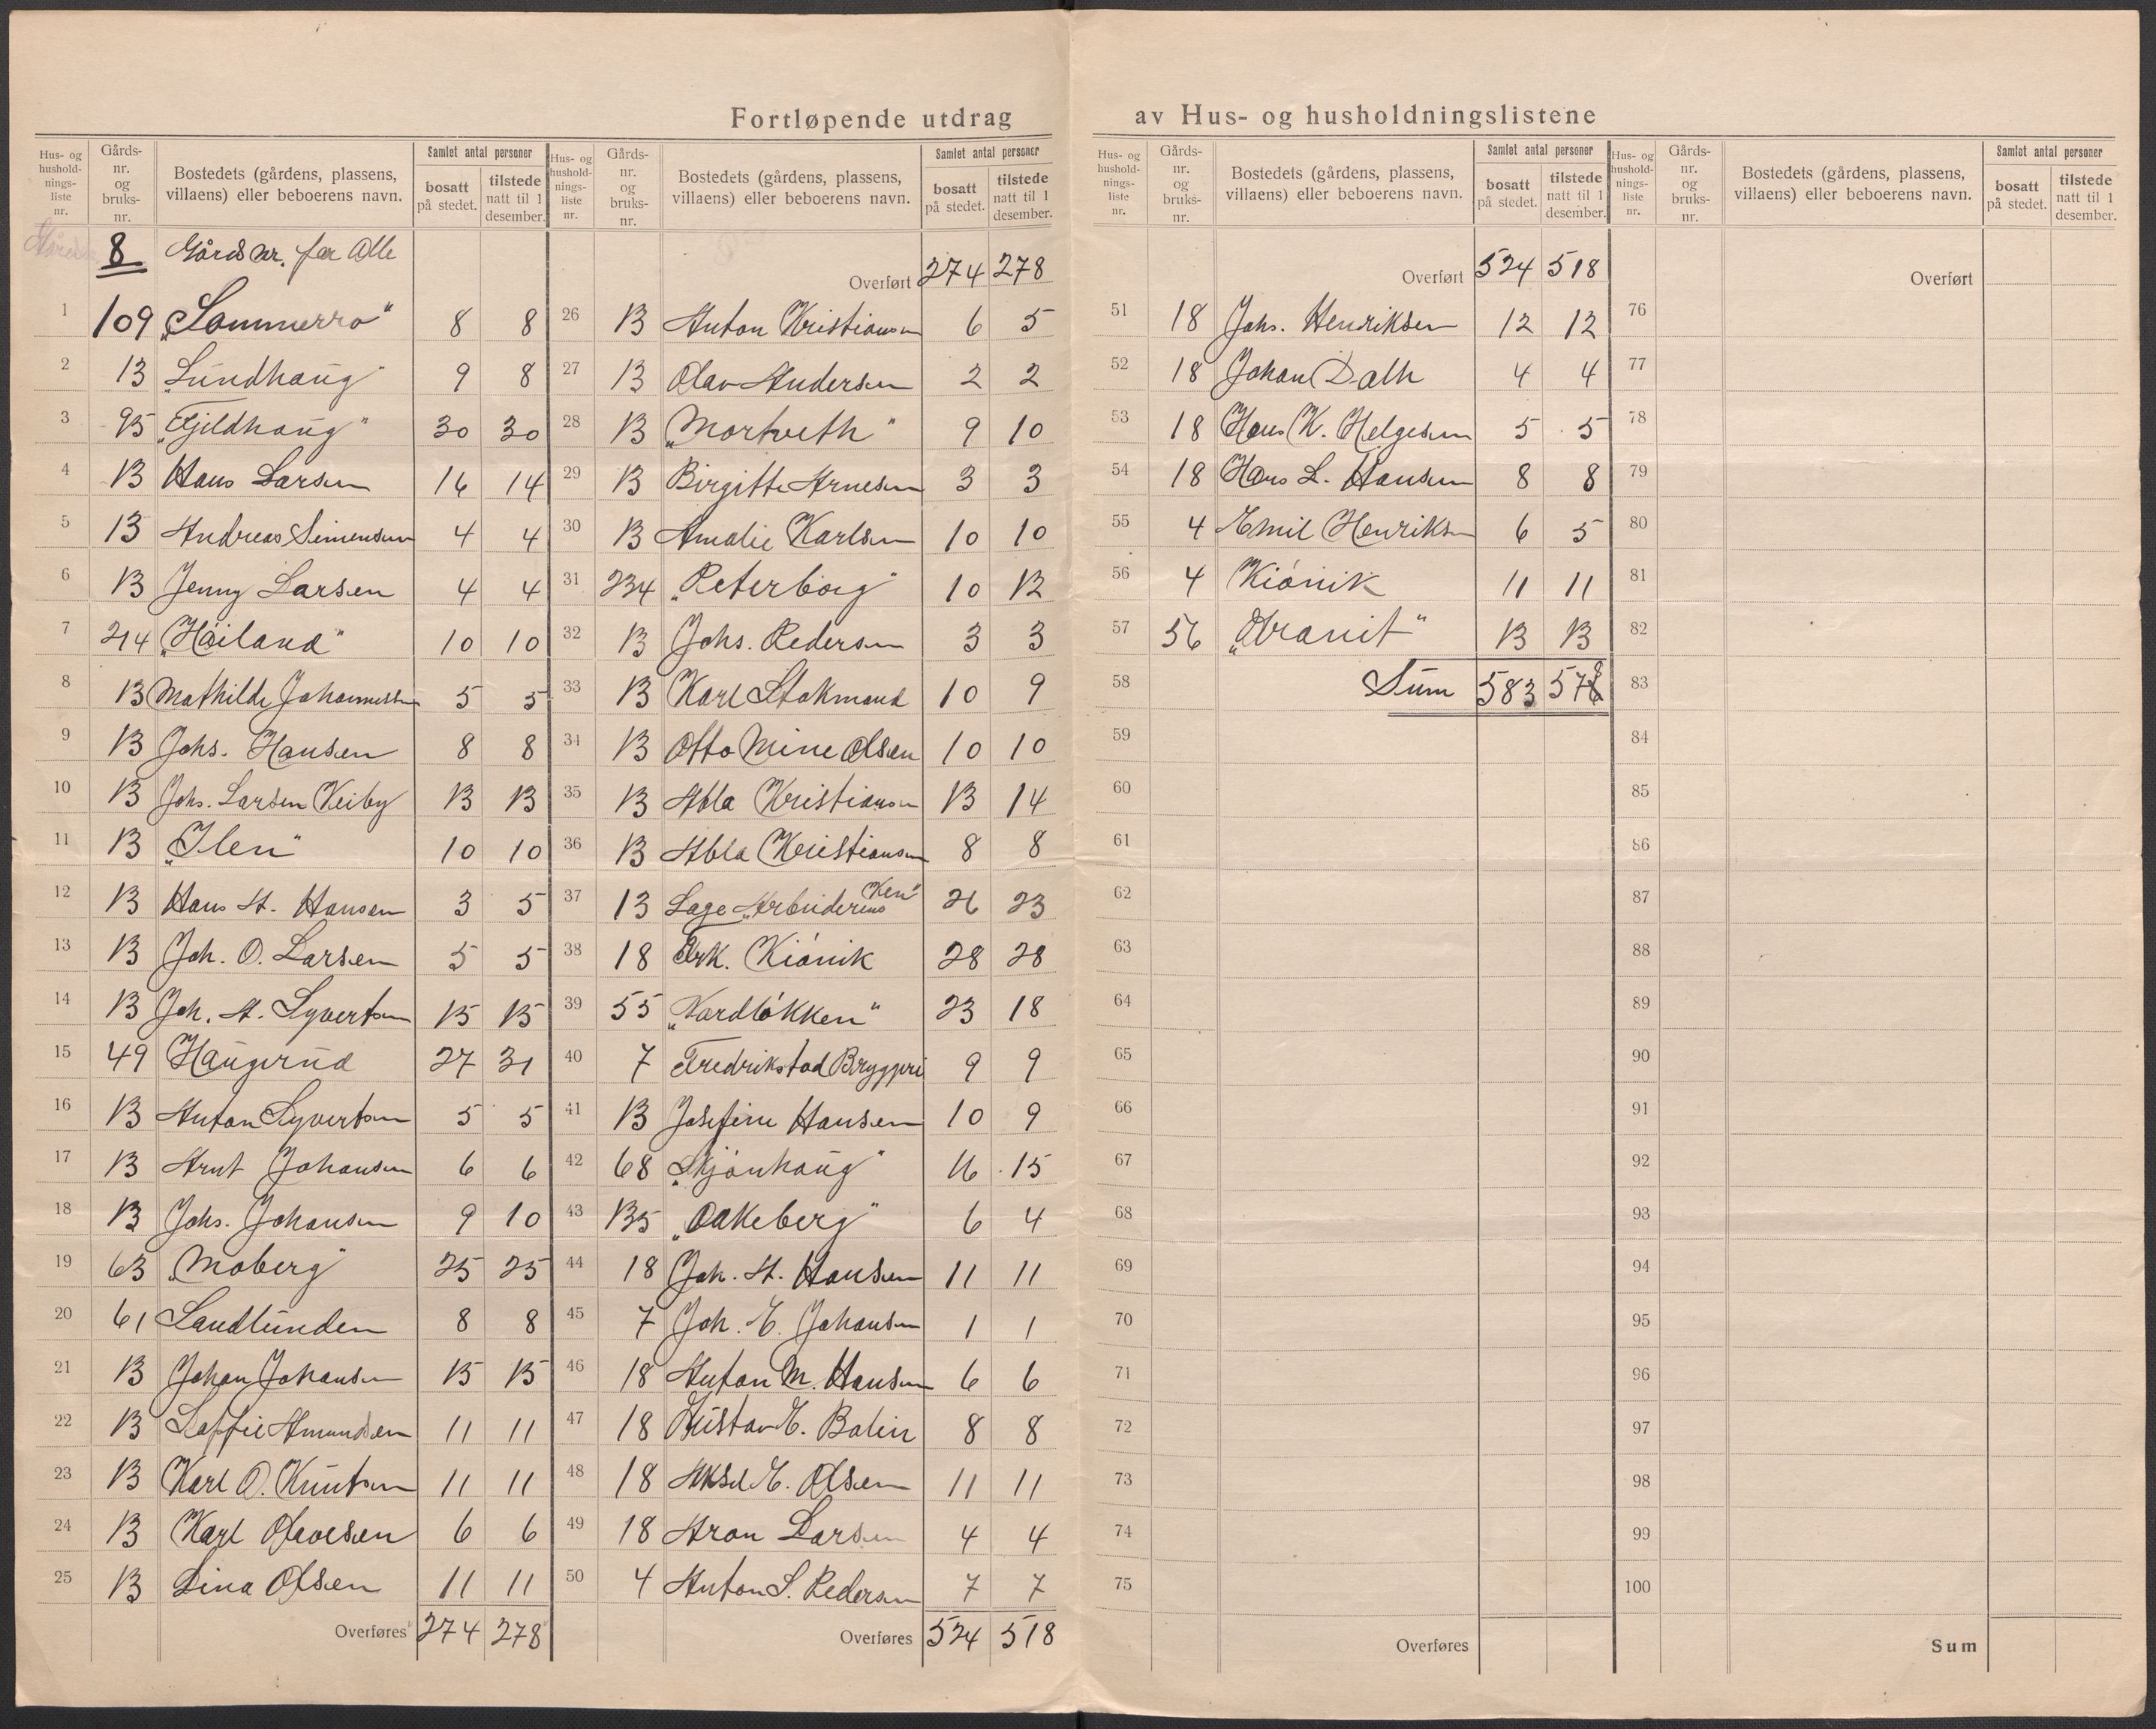 Fortløpende utdrag av Hus- og husholdningslistene
Hus- og hushold-nings-liste nr. Gårds-nr. og bruks-nr. Bostedets (gårdens, plassens, villaens) eller beboerens navn. Samlet antal personer bosatt på stedet. tilstede natt til 1 desember.
8 Gårds nr. for Alle
1 109 „Sommerro" 8 8
2 13 „Lundhaug" 9 8
3 95 „Gjeldhaug" 30 30
4 13 Hans Larsen 16 14
5 13 Andreas Simensen 4 4
6 13 Jenny Larsen 4 4
7 214 „Høiland" 10 10
8 13 Mathilde Johannessen 5 5
9 13 Johs. Hansen 8 8
10 13 Johs. Larsen Veiby 13 13
11 13 „Ilen" 10 10
12 13 Hans A. Hansen 3 5
13 13 Joh. O. Larsen 5 5
14 13 Joh. A. Syvertsen 15 15
15 49 Haugerud 27 31
16 13 Anton Syvertsen 5 5
17 13 Arnt Johansen 6 6
18 13 Johs. Johansen 9 10
19 63 „Moberg" 25 25
20 61 Sandlunden 8 8
21 13 Johan Johansen 15 15
22 13 Amundsen 11 11
23 13 Karl O. Knutsen 11 11
24 13 Karl Olavesen 6 6
25 13 Lina Olsen 11 11
Overføres 274 278
Hus- og hushold-nings-liste nr. Gårds-nr. og bruks-nr. Bostedets (gårdens, plassens, villaens) eller beboerens navn. Samlet antal personer bosatt på stedet. tilstede natt til 1 desember.
Overført 274 278
26 13 Anton Kristiansen 6 5
27 13 Olav Andersen 2 2
28 13 „Mortveth" 9 10
29 13 Birgitte Arnesen 3 3
30 13 Amalie Karlsen 10 10
31 234 „Peterborg" 10 12
32 13 Johs. Pedersen 3 3
33 13 Karl Stokmand 10 9
34 13 Otto Mine Olsen 10 10
35 13 Abla Kristiansen 13 14
36 13 Abla Kristiansen 8 8
37 13 Lage „Arbeiderens" 26 23
38 18 Frk. Kiönik 28 28
39 55 „Nordlökken" 23 18
40 7 Fredrikstad Bryggeri 9 9
41 13 Josefine Hansen 10 9
42 68 „Skjönhaug" 16 15
43 135 „Oakeberg" 6 4
44 18 Joh. A. Hansen 11 11
45 7 Joh. E. Johansen 1 1
46 18 Anton M. Hansen 6 6
47 18 Gustav E. Bolin 8 8
48 18 Aksel E. Olsen 11 11
49 18 Aron Larsen 4 4
50 4 Anton S. Pedersen 7 7
Overføres 524 518
Hus- og hushold-nings-liste nr. Gårds-nr. og bruks-nr. Bostedets (gårdens, plassens, villaens) eller beboerens navn. Samlet antal personer bosatt på stedet. tilstede natt til 1 desember.
Overført 524 518
51 18 Johs. Henriksen 12 12
52 18 Johan Dalh 4 4
53 18 Hans K. Helgesen 5 5
54 18 Hans L. Hansen 8 8
55 4 Emil Henriksen 6 5
56 4 Kiönik 11 11
57 56 „Granit" 13 13
58 Sum 583 576
59
60
61
62
63
64
65
66
67
68
69
70
71
72
73
74
75
Overføres
Hus- og hushold-nings-liste nr. Gårds-nr. og bruks-nr. Bostedets (gårdens, plassens, villaens) eller beboerens navn. Samlet antal personer bosatt på stedet. tilstede natt til 1 desember.
Overført
76
77
78
79
80
81
82
83
84
85
86
87
88
89
90
91
92
93
94
95
96
97
98
99
100
Sum